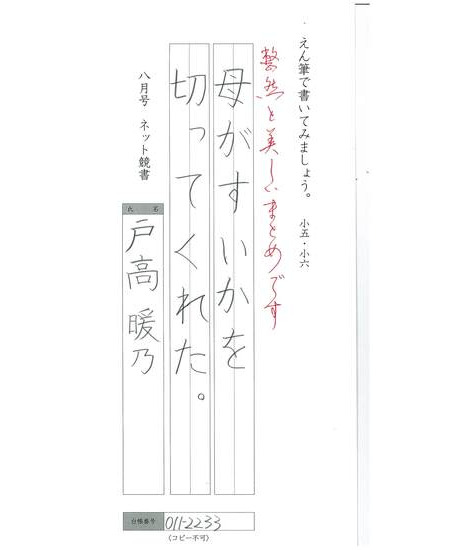 えん筆で書いてみましょう。 小五・小六
整然と美しいまとめです
母がすいかを
切ってくれた。
八月号 ネット競書
氏名
戸高暖乃
台帳番号 011-2233
(コピー不可)